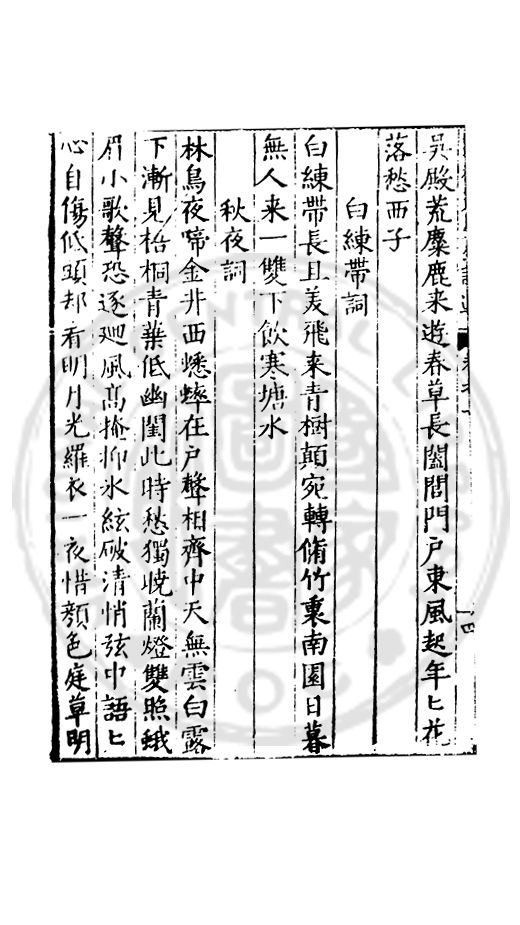 吳殿荒麋鹿来遊春草長闔閭門戸東風起年〻花
落愁西子
白練帶詞
白練帶長且羙飛来青樹顛宛轉脩竹裏南園日暮
無人来一雙下飲寒塘水
秋夜詞
林烏夜啼金井西蟋蟀在戸聲相齊中天無雲白露
下漸見梧桐青葉低幽閨此時愁獨曉蘭燈雙照蛾
眉小歌聲恐逐廻風髙掩抑氷絃破清悄弦中語〻
心自傷低頭却看明月光羅衣一夜惜顔色庭草明